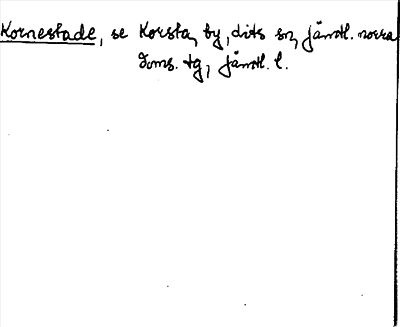 Kornestade, se Korsta, by, dits sn, Jämtl. norra
doms. tg, Jämtl. l.